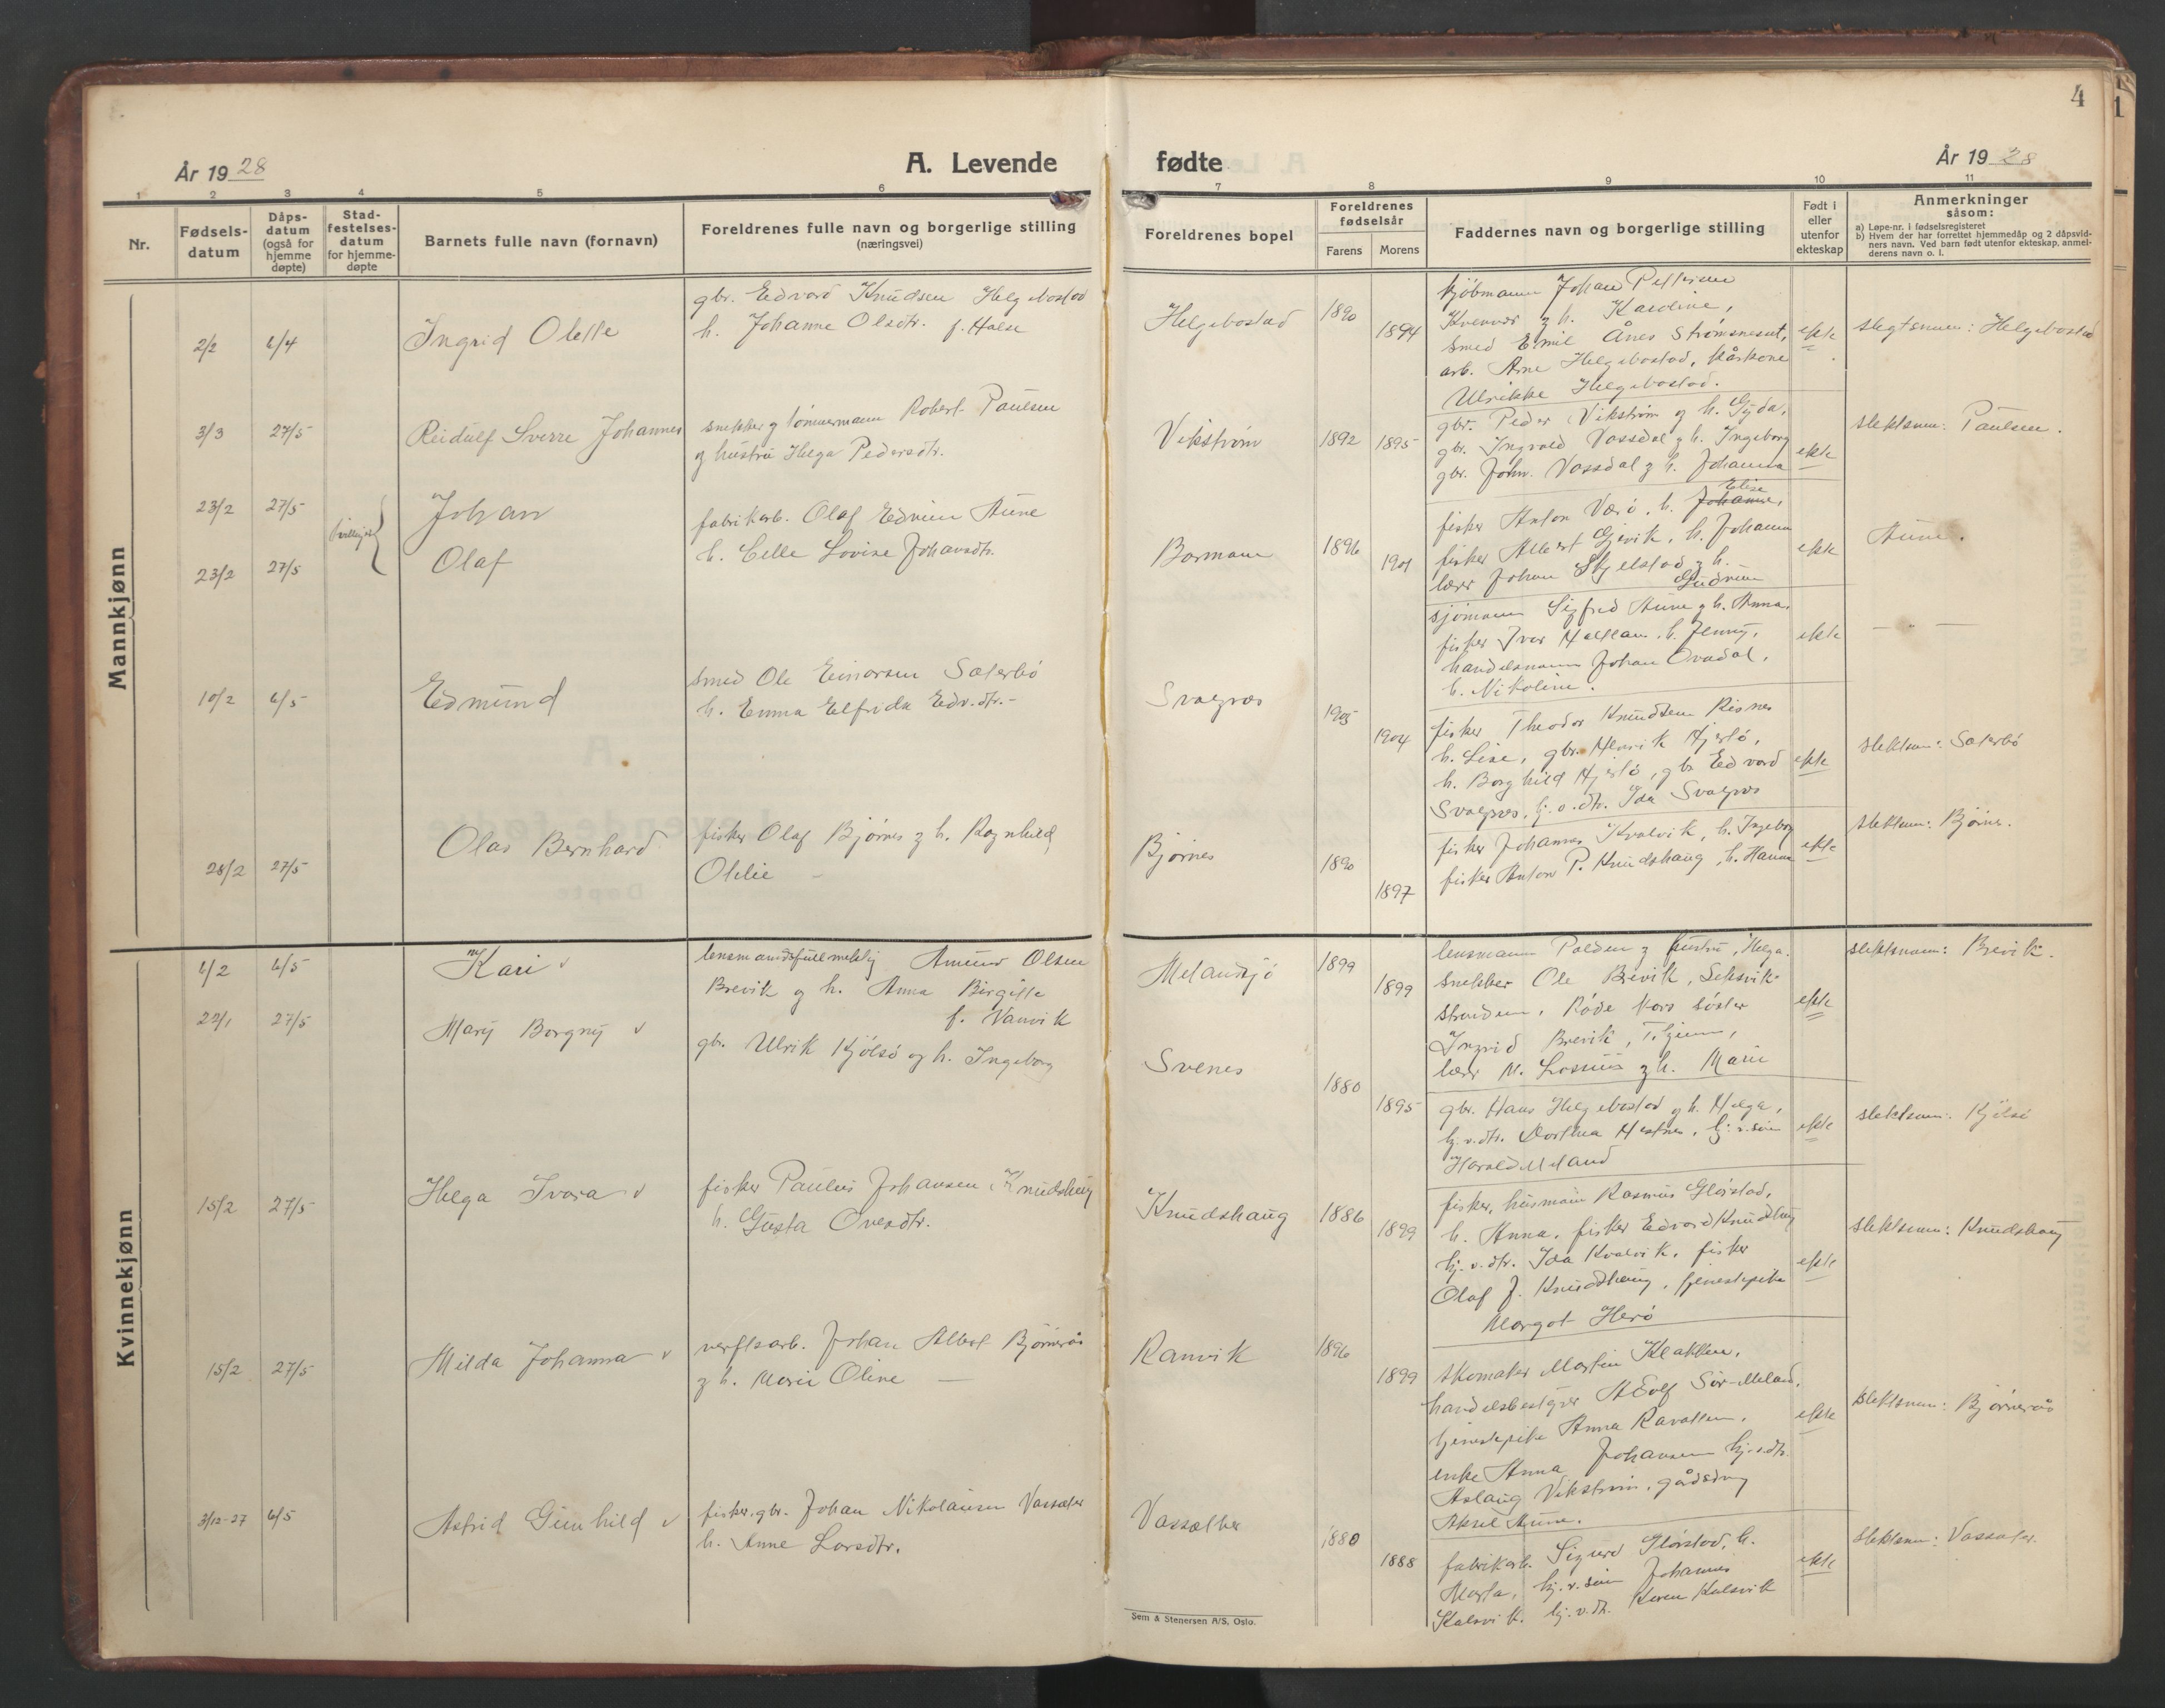 4
År 1928
A. Levende
fødte
År 1928
1 2 3 4 5 6 7 8 9 10 11
Nr.
Fødsels-
datum
Dåps-
datum
(også for
hjemme
døpte)
Stad-
festelses-
datum
for hjemme-
døpte
Barnets fulle navn (fornavn)
Foreldrenes fulle navn og borgerlige stilling
(næringsvei)
Foreldrenes bopel
Foreldrenes
fødselsår
Farens
Morens
Faddernes navn og borgerlige stilling
Født i
eller
utenfor
ekteskap
Anmerkninger
såsom:
a) Løpe-nr. i fødselsregisteret
b) Hvem der har forrettet hjemmedåp og 2 dåpsvid-
ners navn. Ved barn født utenfor ekteskap, anmel-
derens navn o. l.
Mannkjønn
2/2
Ingrid Olette
gbr. Edvard Knudsen Helgebostad
h. Johanne Olsdtr. f. Halse
Helgebostad
1890
1894
kjøbmann Johan Pettersen
Kvenvær og h. Karoline,
smed Emil Ånes Strømsneset,
arb. Arne Helgebostad, kårkone
Ulrikke Helgebostad.
ekte
slegtsnavn: Helgebostad
3/3
27/5
Reidulf Sverre Johannes
snekker og tømmermann Robert Paulsen
og hustru Helga Pedersdtr.
Vikstrøm
1892
1895
gbr. Peder Vikstrøm og h. Gyda,
gbr. Ingvald Vassdal og h. Ingeborg
gbr. John Vassdal og h. Johanna
ekte
slektsnavn: Paulsen.
23/2
27/5
Johan
23/2
27/5
Olaf
fabrikarb. Olaf Edvin Aune
h. Lovise Johansdtr.
1896
1901
fisker Anton Værø, h. Johanna, Elise
fisker Albert Gjevik, h. Johanna
lærer Johan Skjelstad og h.
Gudrun
ekte
Aune.
sjømann Sigfred Aune og h. Anna.
fisker Iver h. Jenny,
handelsmann Johan Ovadal,
h. Nikoline.
ekte
— " —
10/2
6/5
Edmund
smed Ole Einarsen Sæterbø
h. Emma Elfrida Edv.dtr.-
Svægræs
1905
1904
fisker Theodor Knudsen Risnes
h. Lise, gbr. Henrik Hjertø,
h. Borghild Hjertø, gbr Edvard
Svægræs, gj. v. dtr. Ida Svægræs
ekte
slektsnavn: Sæterbø
28/2
27/5
Olav Bernhard
fisker Olaf Bjørnes og h. Ragnhild
Otelie -
Bjørnes
1890
1897
fisker Johannes Kvalvik, h. Ingeborg
fisker Anton P. Knudshaug, h. Hanna
ekte
slektsnavn: Bjørnes.
Kvinnekjønn
6/2
6/5
Kari v
lensmandsfullmektig Amund Olsen
Brevik og h. Anna Birgitte
f. Vanvik
Melandsjø
1899
1899
lensmann Paulsen og hustru, Helga.
snekker Ole Brevik, Leksvik-
stranden, Røde Kors søster
Ingrid Brevik, Tr.hjem,
lærer M. Losnius og h. Marie
ekte
slektsnavn: Brevik.
22/1
27/5
Mary Borgny v
gbr. Ulrik Kjølsø og h. Ingeborg
Svenes
1880
1895
gbr. Hans Helgebostad og h. Helga,
hj.v.dtr. Dorthea Hestnes, hj.v. søn
Harald Meland
ekte
slektsnavn: Kjølsø
15/2
27/5
Helga Ivara v
fisker Paulus Johansen Knudshaug
h. Gusta Ovesdtr.
Knudshaug
1886
1899
fisker, husmann Rasmus Glørstad,
h. Anna, fisker Edvard Knudshaug
hj.v.dtr. Ida Kvalvik, fisker
Olaf J. Knudshaug, tjenestepike
Margot Herø
ekte
slektsnavn: Knudshaug
15/2
27/5
Milda Johanna v
verftsarb. Johan Albert Bjørnerås
og h. Marie Oline —
Ranvik
1896
1899
skomaker Martin Klakken,
handelsbestyrer Adolf Sør-Meland,
tjenestepike Anna
enke Anna Johansen hj.v.dtr.
Aslaug Vikstrøm, gårdsdreng
Aksel Aune.
ekte
slektsnavn: Bjørnerås
3/12-27
6/5
Astrid Gunhild v
fisker, gbr. Johan Nikolausen Vassæter
h. Anne Larsdtr.
Vassæther
1880
1888
fabrikarb. Sigurd Glørstad, h.
Marta, hj.v.søn Johannes
Kalsvik, hj.v.dtr. Karen Kalsvik
ekte
slektsnavn: Vassæter.
Sem & Stenersen A/S, Oslo.